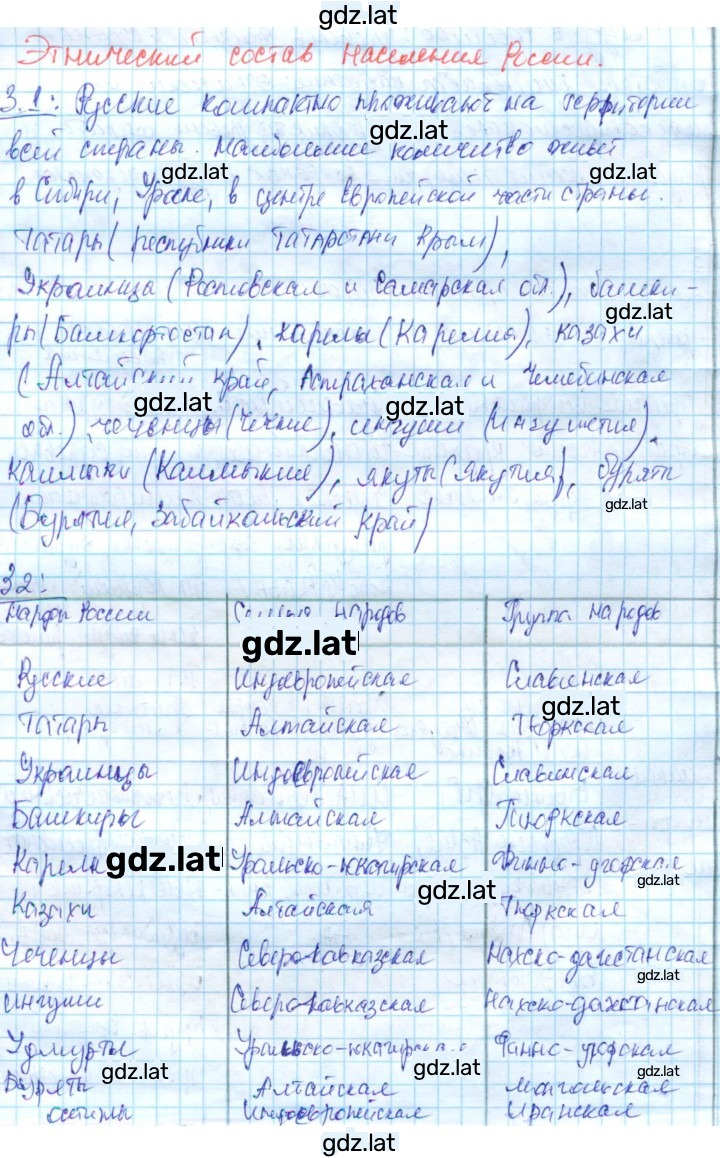 gdz.lat
Этнический состав населения России.
3.1: Русские компактно проживают на территории
gdz.lat
всей страны. Наибольшее количество живёт
gdz.lat gdz.lat
в Сибири, Урале, в центре Европейской части страны.
Татары (республики Татарстан и Крым),
Украинцы (Ростовская и Самарская обл.), башки-
gdz.lat
ры (Башкортостан), карелы (Карелия), казахи
(Алтайский край, Астраханская и Челябинская
gdz.lat gdz.lat
обл.), чеченцы (Чечне), ингуши (Ингушетия),
калмыки (Калмыкия), якуты (Якутия), буряты
gdz.lat
(Бурятия, Забайкальский край)
3.2:
Народы России Семья народов Группа народов
gdz.lat
Русские Индоевропейская Славянская
gdz.lat
Татары Алтайская Тюркская
Украинцы Индоевропейская Славянская
Башкиры Алтайская Тюркская
Карелы gdz.lat Уральско-юкагирская Финно-угорская
gdz.lat gdz.lat
Казахи Алтайская Тюркская
Чеченцы Северо-кавказская Нахско-дагестанская
gdz.lat
ингуши Северо-кавказская Нахско-дагестанская
Удмурты Уральско-юкагирская Финно-угорская
gdz.lat gdz.lat
Буряты Алтайская Монгольская
осетины Индоевропейская Иранская
gdz.lat